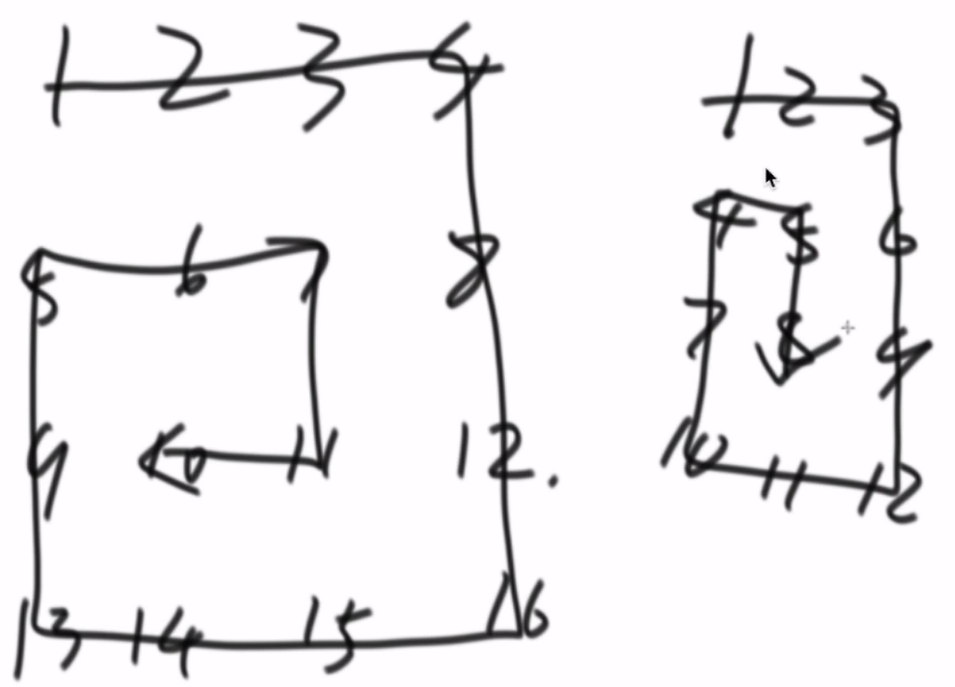 1 2 3 4
5 6 7 8
9 10 11 12.
13 14 15 16
1 2 3
4 5 6
7 8 9
10 11 12